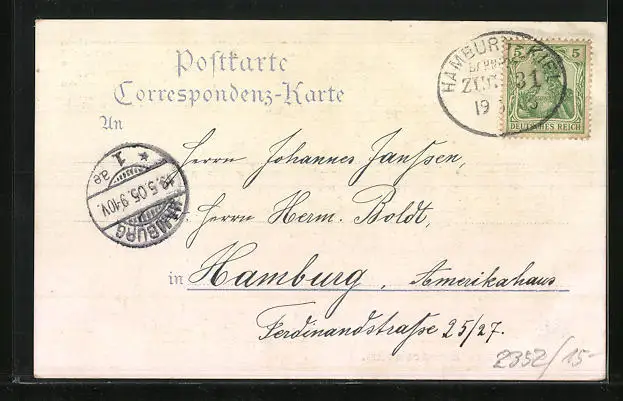 Postkarte
Correspondenz-Karte
An
HAMBURG KIEL
ZUG 31
19
5 5
DEUTSCHES REICH
Herrn Johannes Janssen,
Herrn Herm. Boldt,
in Hamburg, Amerikahaus
Ferdinandstraße 25/27.
HAMBURG
19.5.05. 9-10V.
* 1 ae
2352/15-